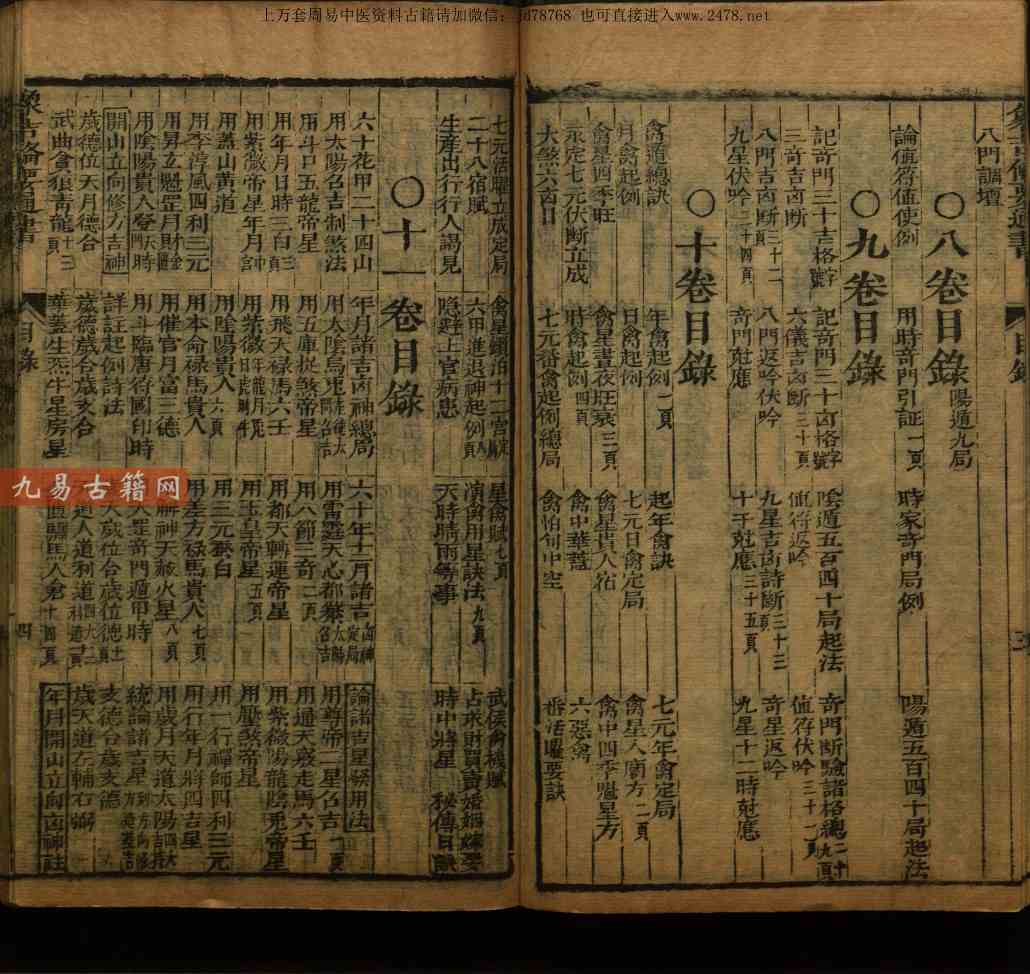 上万套周易中医资料古籍请加微信：
78768 也可直接进入www.2478.net
九易古籍网
八門謁壇
〇八卷目錄 陽遁九局
論值符值使例 用時奇門引証一頁 時家奇門局例 陽遁五百四十局起法
〇九卷目錄
記奇門三十吉格 記奇門三十凶格 陰遁五百四十局起法 奇門斷驗諸格總
三奇吉凶斷 六儀吉凶斷三十頁 值符返吟 值符伏吟三十一頁
八門吉凶斷三十二頁 八門返吟伏吟 九星吉凶詩斷三十三頁 奇星返吟
九星伏吟三十四頁 奇門尅應 十干尅應三十五頁 九星十二時尅應
〇十卷目錄
禽遁總訣 年禽起例一頁 起年禽訣 七元年禽定局
月禽起例 日禽起例 七元日禽定局 禽星入廟方二頁
禽星四季旺 禽星晝夜旺衰三頁 禽星喜入宿 禽中四季魁星方
永定七元伏断立成 時禽起例四頁 禽中華蓋 六惡禽
大煞六凶日 七元番禽起例總局 禽怕旬中空 番活曜要訣
七元活曜立成定局 星禽賦七頁 武侯禽機賦
二十八宿賦 六甲進退神起例 演禽用星訣法九頁 占求財買賣婚姻嫁娶
生產出行行人謁見 隐避上官病患 天時晴雨等事 時中將星 秘傳日訣
〇十一卷目錄
六十花甲二十四山 年月諸吉凶神總局 六十年十二月諸吉 論諸吉星發用法
用太陽名吉制煞法 用太陰烏兎 用雷霆天心都纂 用尊帝二星名吉一頁
用斗口五龍帝星 用五庫捉煞帝星 用八節三奇二頁 用通天竅走馬六壬
用年月日時三白三頁 用飛天禄馬六壬 用都天轉運帝星 用紫微陽龍陰兎帝星
用紫微帝星年月 用紫微 用玉皇帝星五頁 用壓煞帝星
用蓋山黄道 用陰陽貴人六頁 用三元紫白 用一行禪師四利三元
用李淳風四利三元 用本命禄馬貴人 用差方禄馬貴人七頁 用行年月將四吉星
用昇立魁罡月財 用催官月富三德 神天藏火星八頁 用歲月天道太陽
用陰陽貴人登天門時 用斗臨唐符國印時 奇門遁甲時 統論諸吉星
開山立向修方吉神 詳註起例詩法 歲位合歲位德 支德合歲支德
歲德位天月德合 歲德歲合歲支合 人道利道 歲天道左輔右弼
武曲貪狼青龍 華蓋生炁牛星房星 驛馬人倉十四頁 年月開山立向凶神註
目錄
四